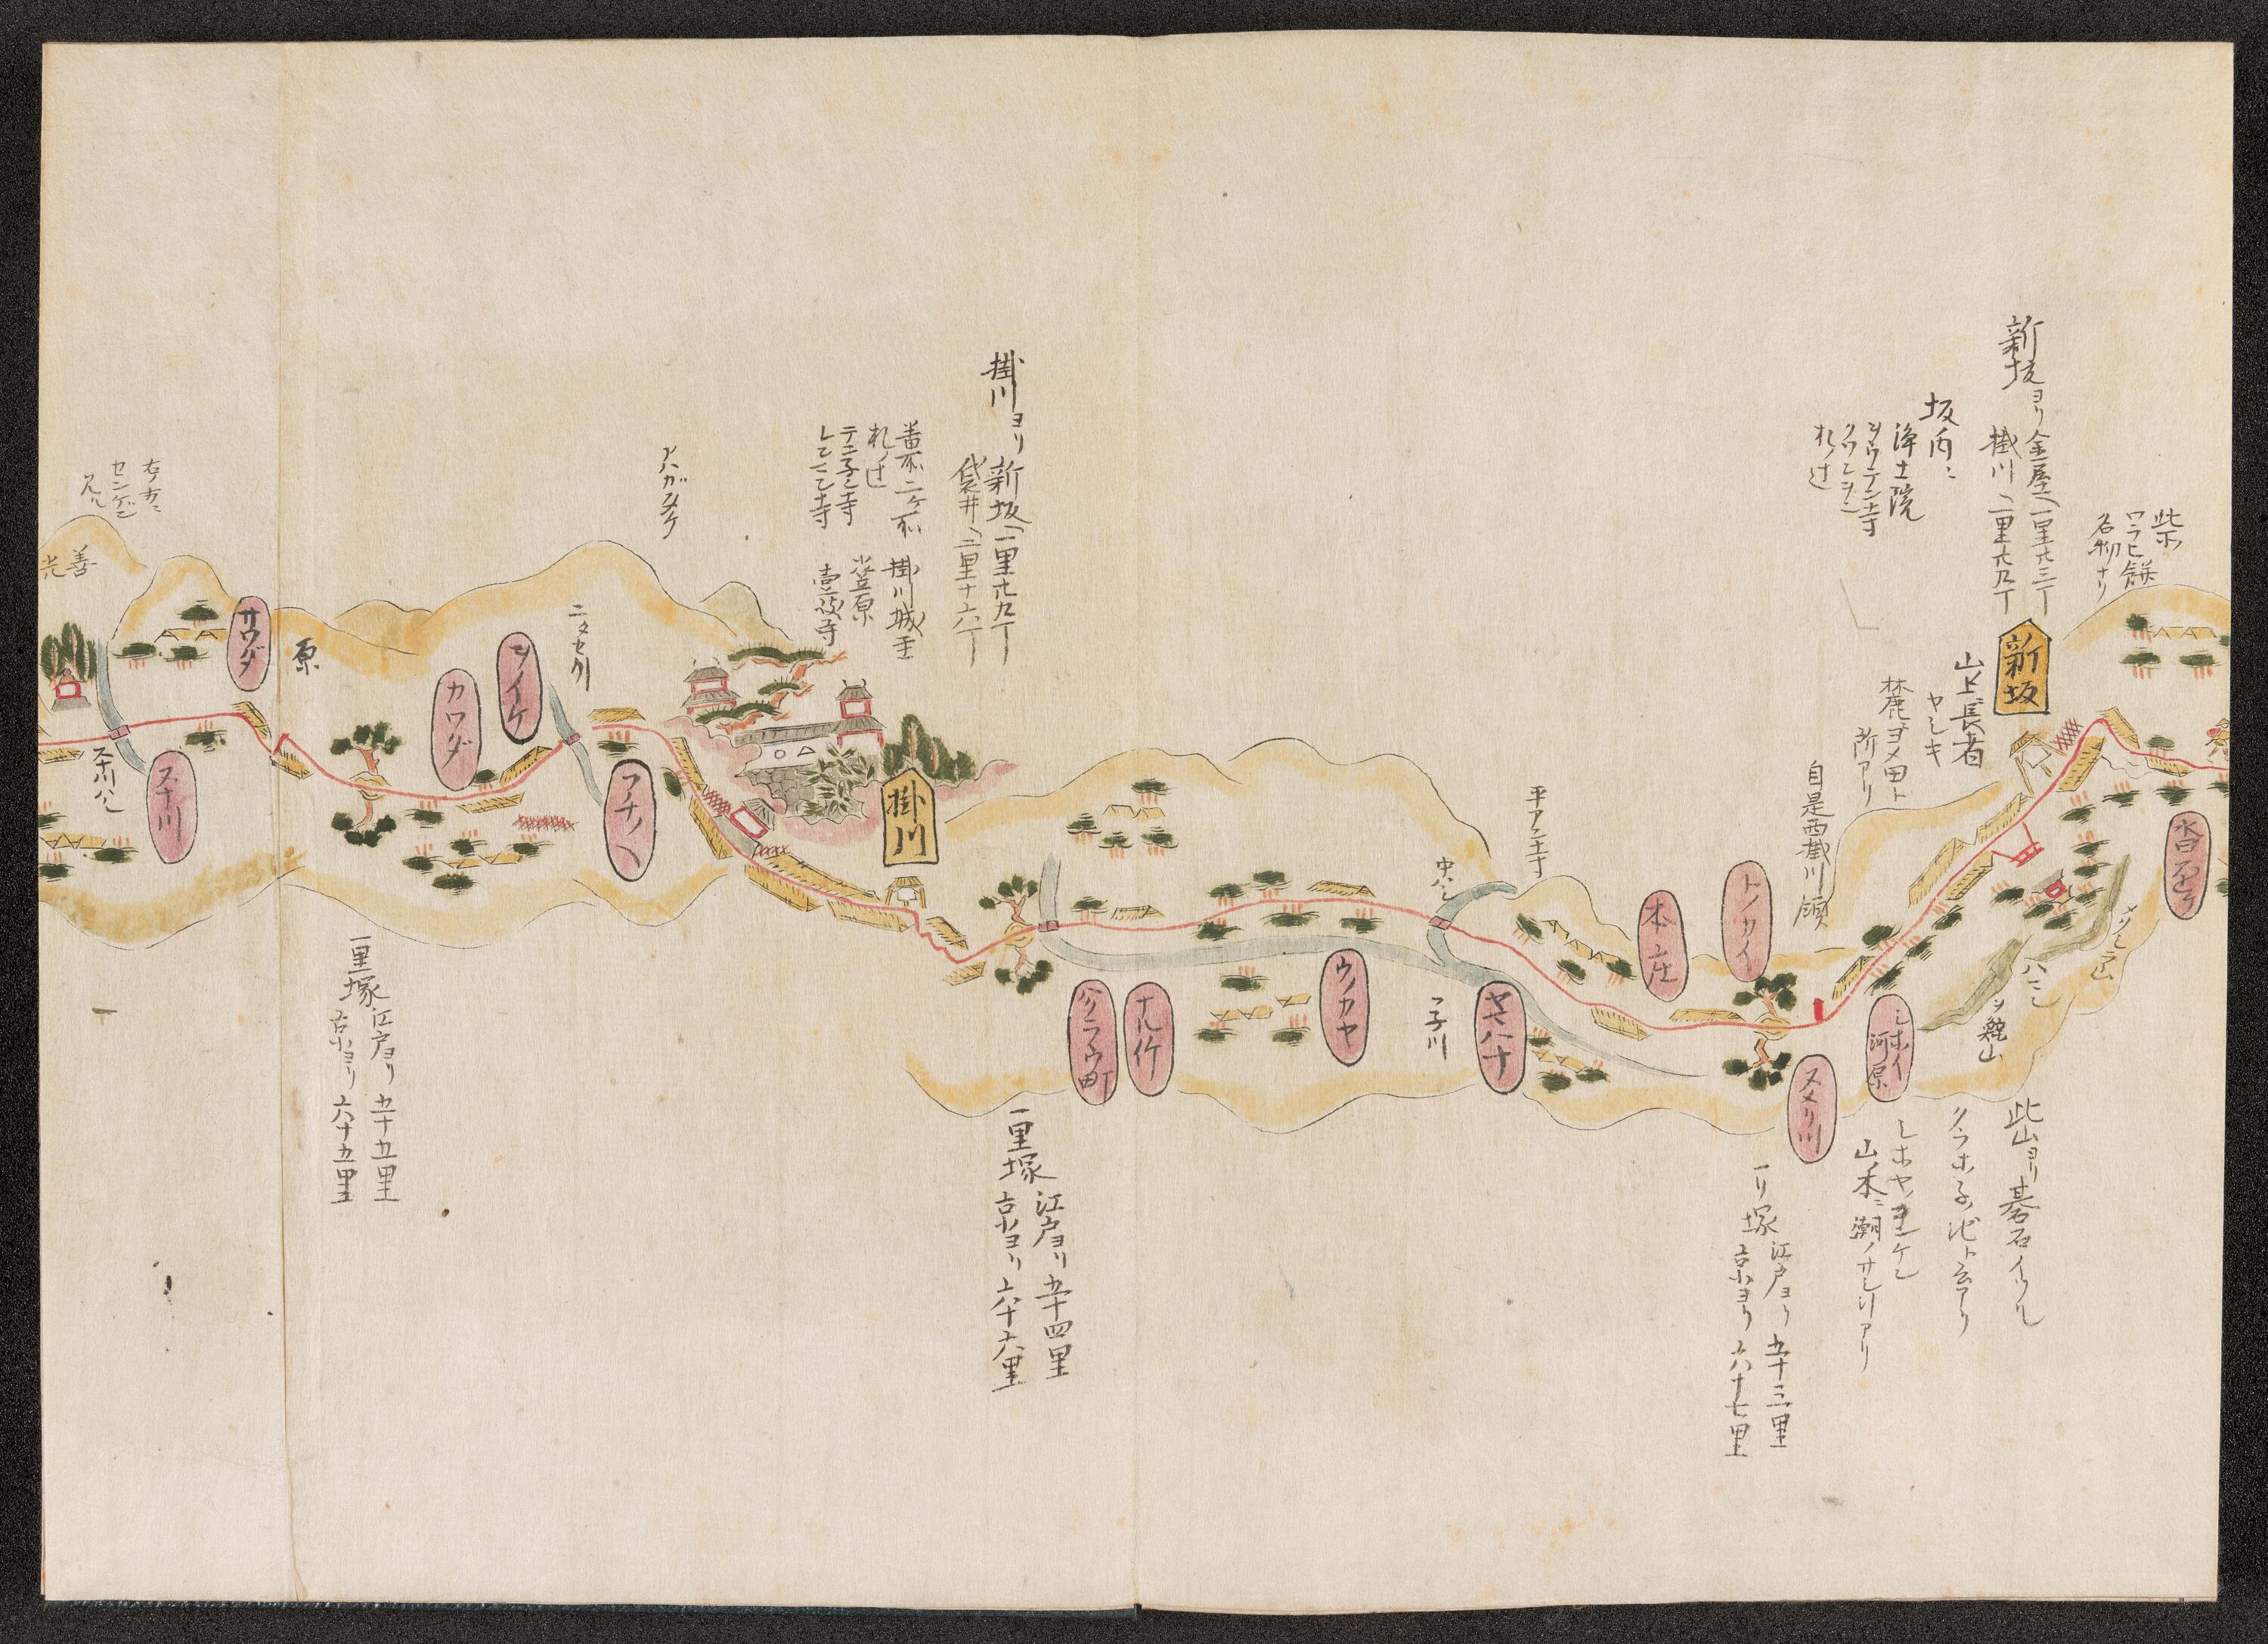 此所
ワラヒ餅
名物ナリ
新坂ヨリ金屋ヘ一里廿三丁
掛川ヘ二里廿九丁
新坂
坂内ニ
浄土院
札ノ辻
山上長者
ヤシキ
麓ニヨメ田ト
所アリ
自是西掛川領
沓
メクミ山
八シ
鞍山
此山ヨリ碁石イツル
池ト云アリ
シホイ河原
山ノ禾ニ潮ノサシ引アリ
スメリ川
一リ塚
江戸ヨリ五十三里
京ヨリ六十七里
トノカイ
本庄
平アン寺
中ハシ
ヤマハナ
子川
ウノカヤ
ナル竹
町
一里塚
江戸ヨリ五十四里
京ヨリ六十六里
掛川ヨリ新坂ヘ一里廿九丁
袋井ヘ二里十六丁
番所二ヶ所
札ノ辻
掛川城主
小笠原
壱岐守
掛川
アハガタケ
ニタセ川
フチノハ
ヲイケ
カワダ
一里塚
江戸ヨリ五十五里
京ヨリ六十五里
原
サワダ
右ノ方ニ
センゲン
アル
善光
ス川ハシ
スナ川